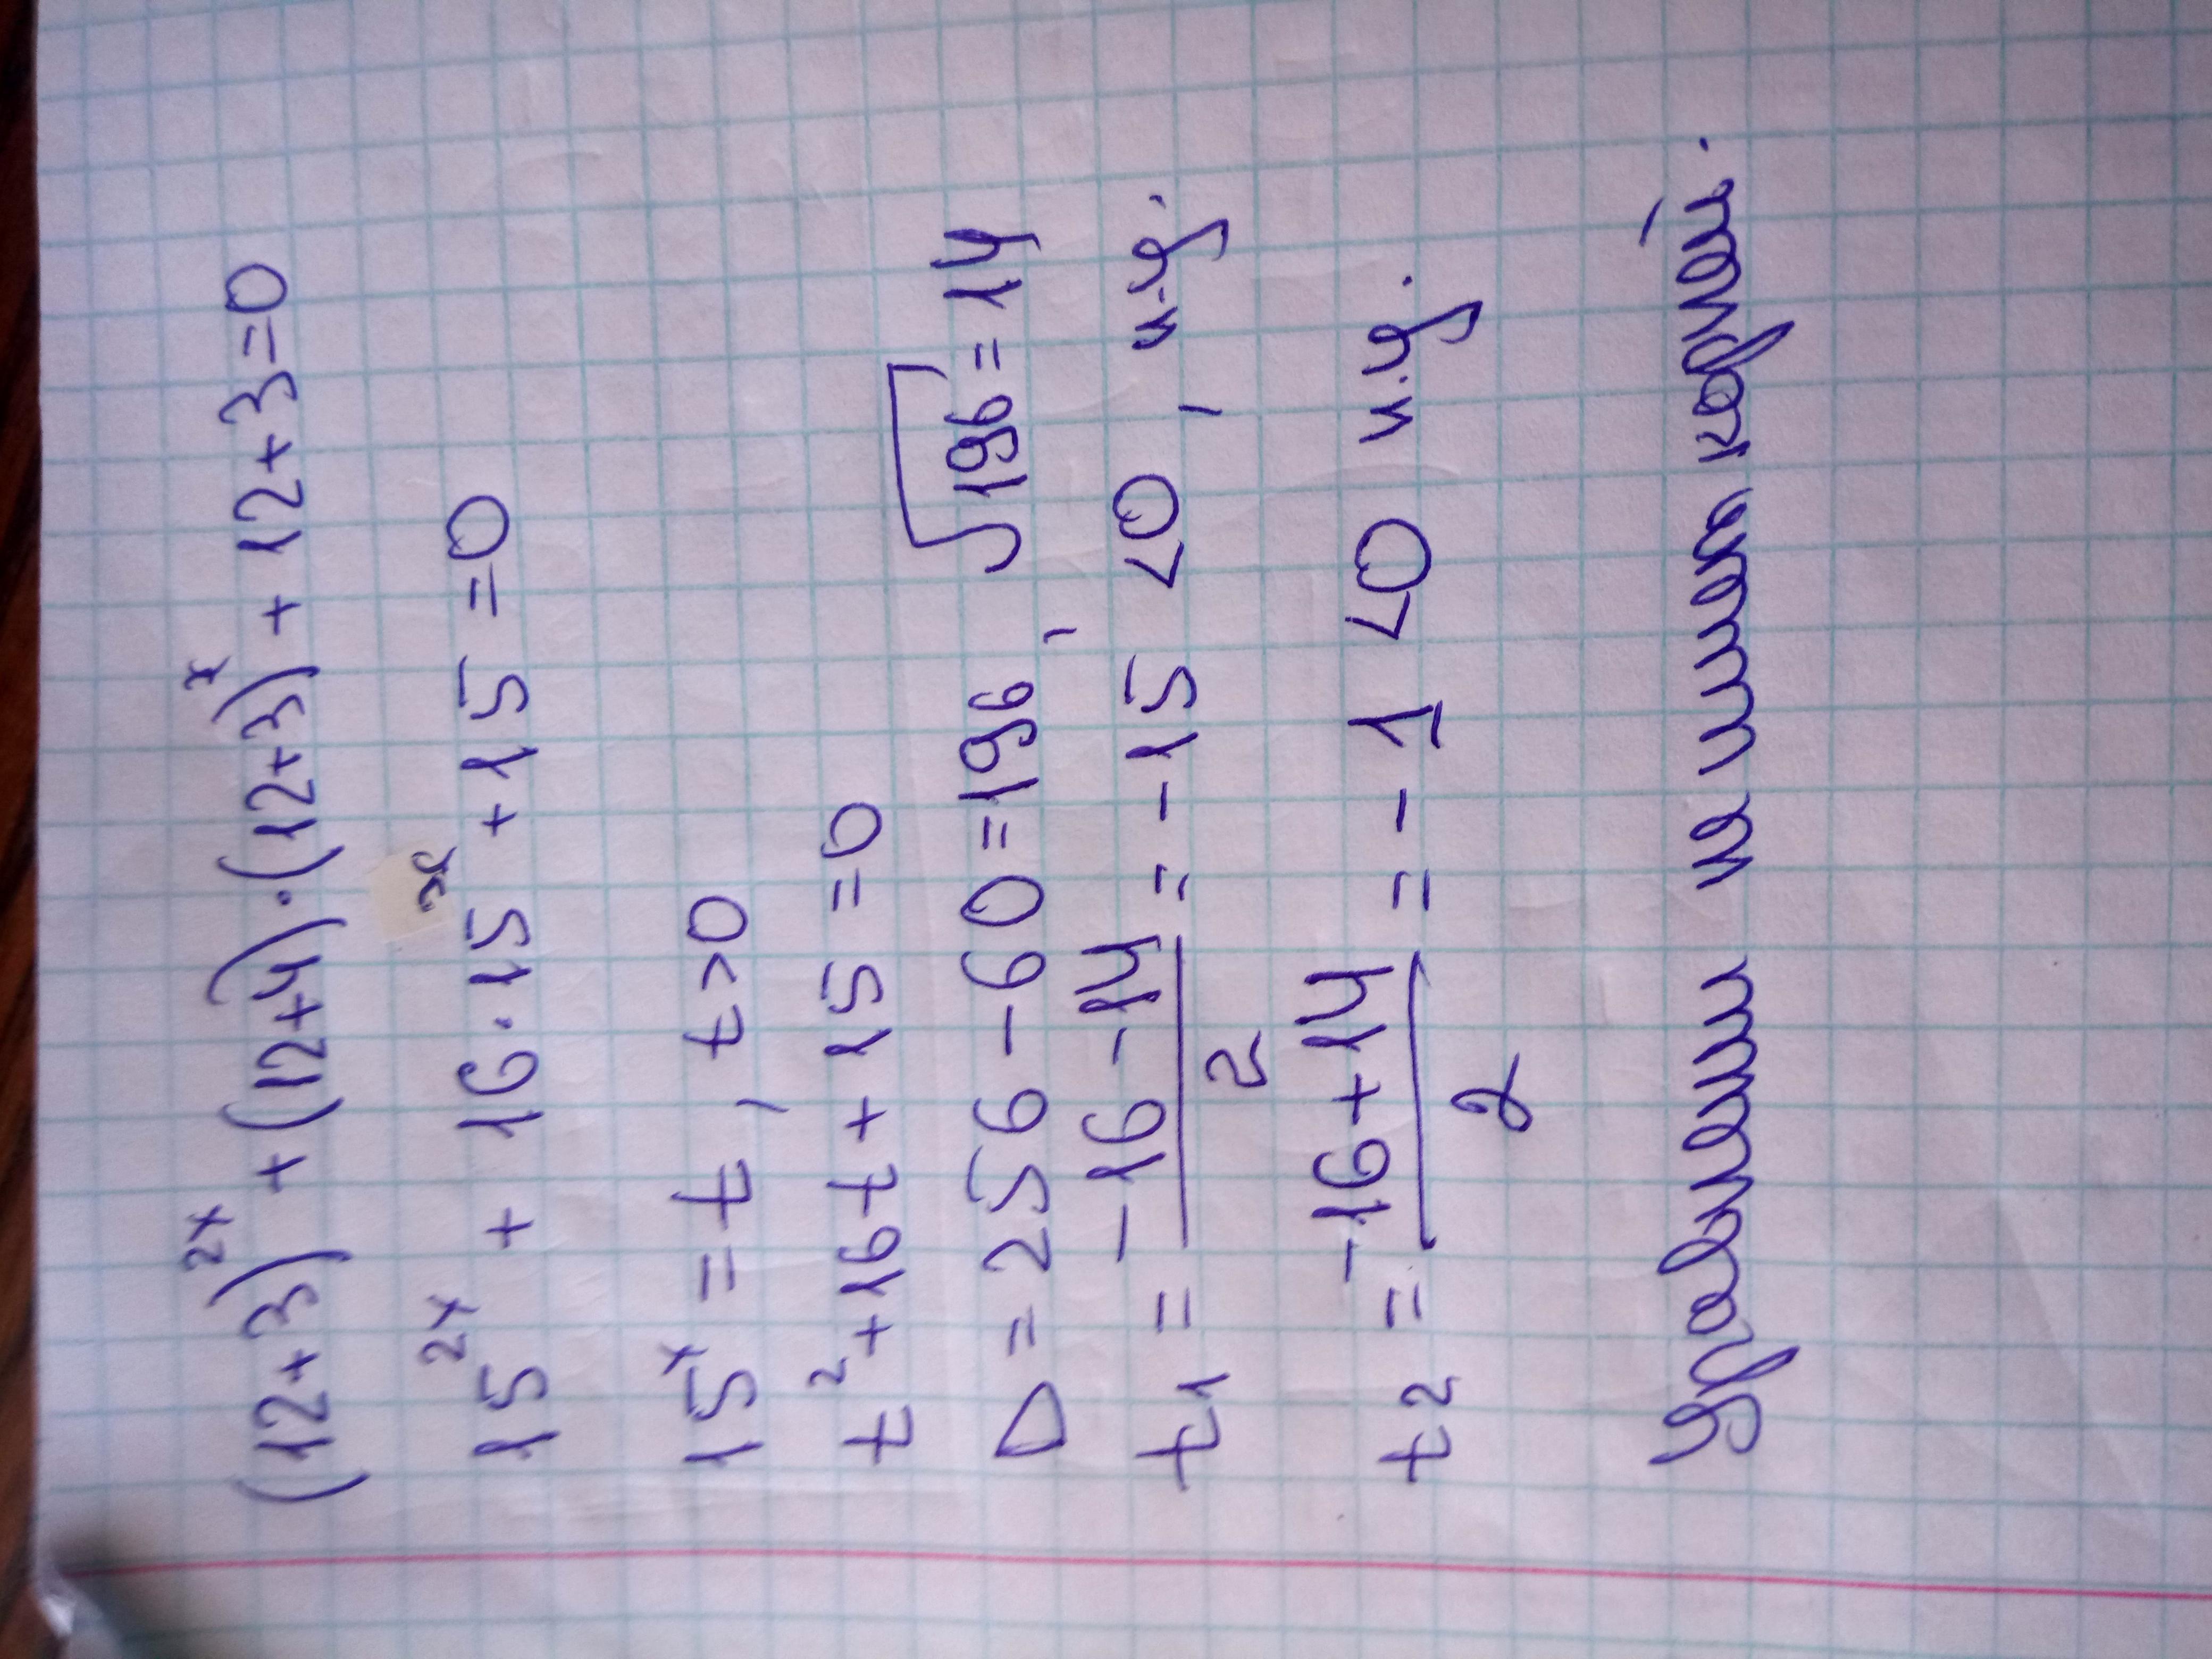 (12+3)²ˣ + (12+4)·(12+3)ˣ + 12+3=0
15²ˣ + 16·15ˣ + 15 =0
15ˣ = t , t>0
t² + 16t + 15 =0
D = 256 - 60 = 196 , √196 = 14
t₁ = (-16 - 14)/2 = -15 <0 , н.у.
t₂ = (-16+14)/2 = -1 <0 н.у.
Уравнение не имеет корней.